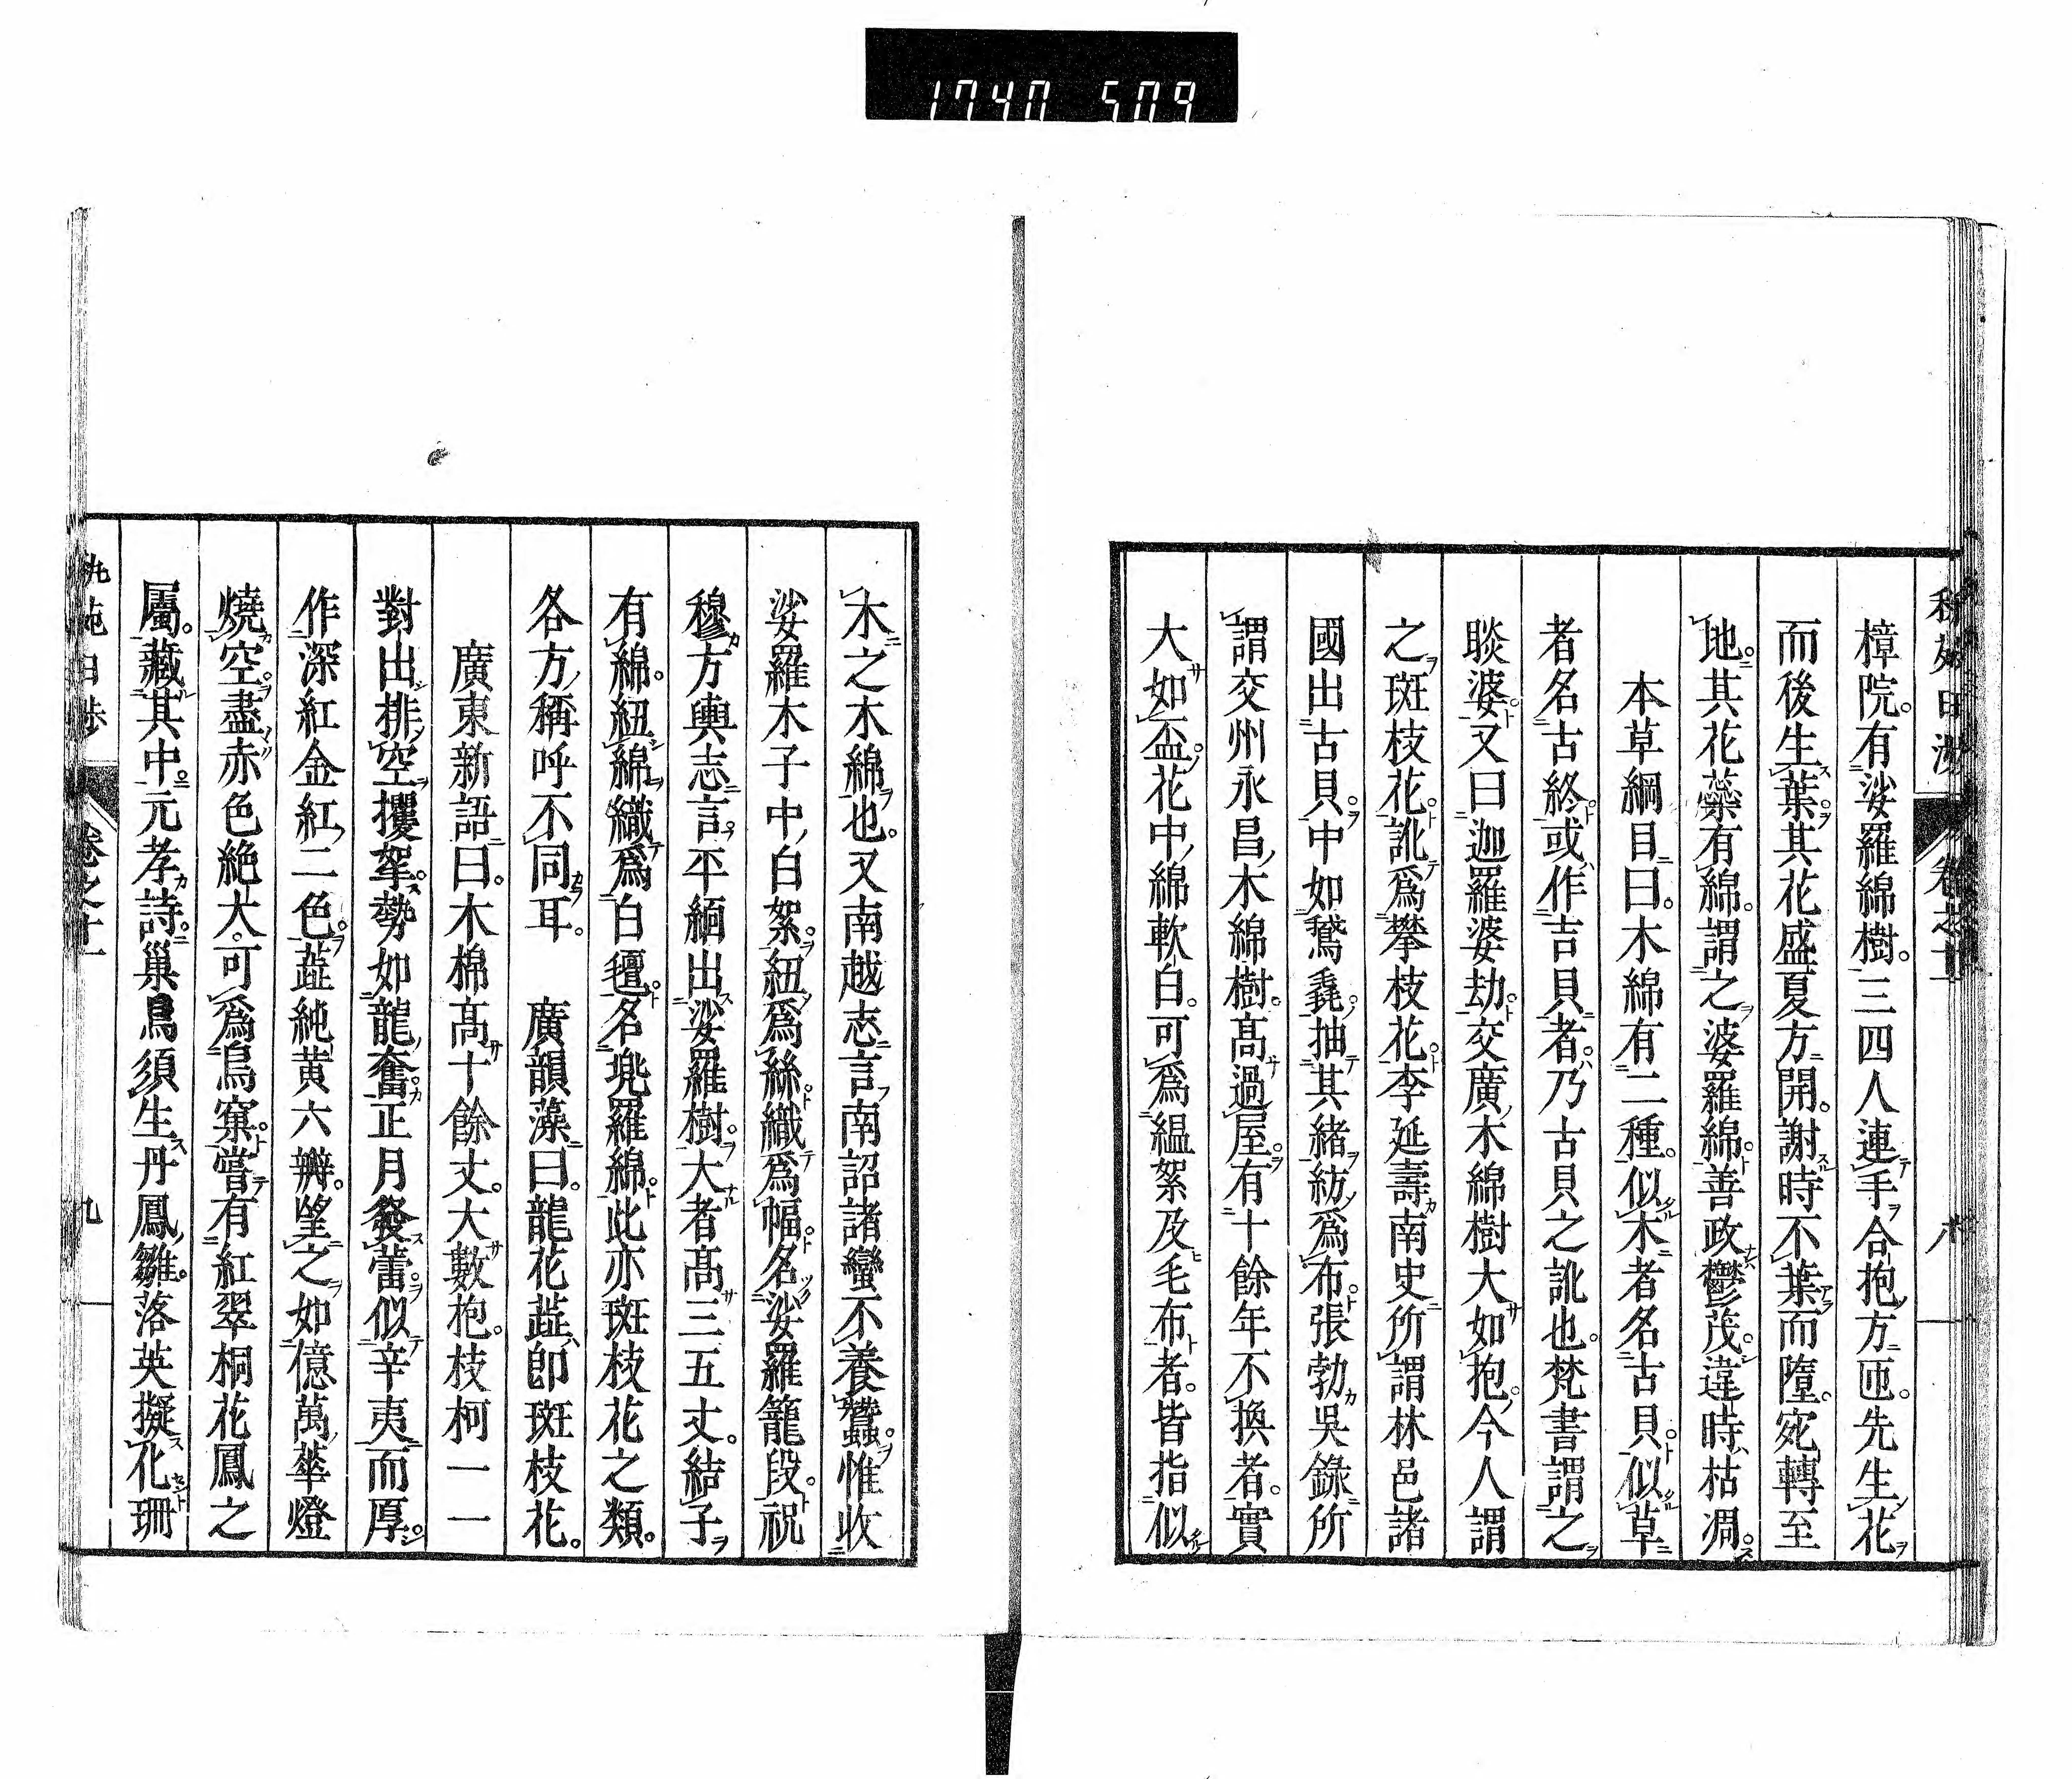 1740 509
樟院。有娑羅綿樹。三四人連手合抱方匝。先生花
而後生葉。其花盛夏方開。謝時不葉而墮。宛轉至
地。其花蘂有綿。謂之婆羅綿。善政鬱茂。違時枯凋。
本草綱目曰。木綿有二種。似木者名古貝。似草
者名古終。或作吉貝者。乃古貝之訛也。梵書謂之
睒婆。又曰迦羅婆劫。交廣木綿樹大如抱。今人謂
之斑枝花。訛爲攀枝花。李延壽南史所謂林邑諸
國出古貝。中如鵞毳。抽其緒紡爲布。張勃吳錄所
謂交州永昌木綿樹。高過屋。有十餘年不換者。實
大如盃。花中綿軟白。可爲縕絮及毛布者。皆指似
木之木綿也。又南越志言南詔諸蠻不養蠶。惟收
娑羅木子中白絮。紐爲絲。織爲幅。名娑羅籠段。祝
穆方輿志言。平緬出娑羅樹。大者高三五丈。結子
有綿。紐綿織爲白氎。名兠羅綿。此亦斑枝花之類。
各方稱呼不同耳。　廣韻藻曰。龍花蘂。卽斑枝花。
廣東新語曰。木棉高十餘丈。大數抱。枝柯一一
對出。排空攫挐。勢如龍奮。正月發蕾。似辛夷而厚。
作深紅金紅二色。蘂純黃六瓣。望之如億萬華燈
燒空。盡赤色絕大。可爲鳥窠。嘗有紅翠桐花鳳之
屬。藏其中。元孝詩。巢鳥須生丹鳳雛。落英擬化珊
卷之十
八
九